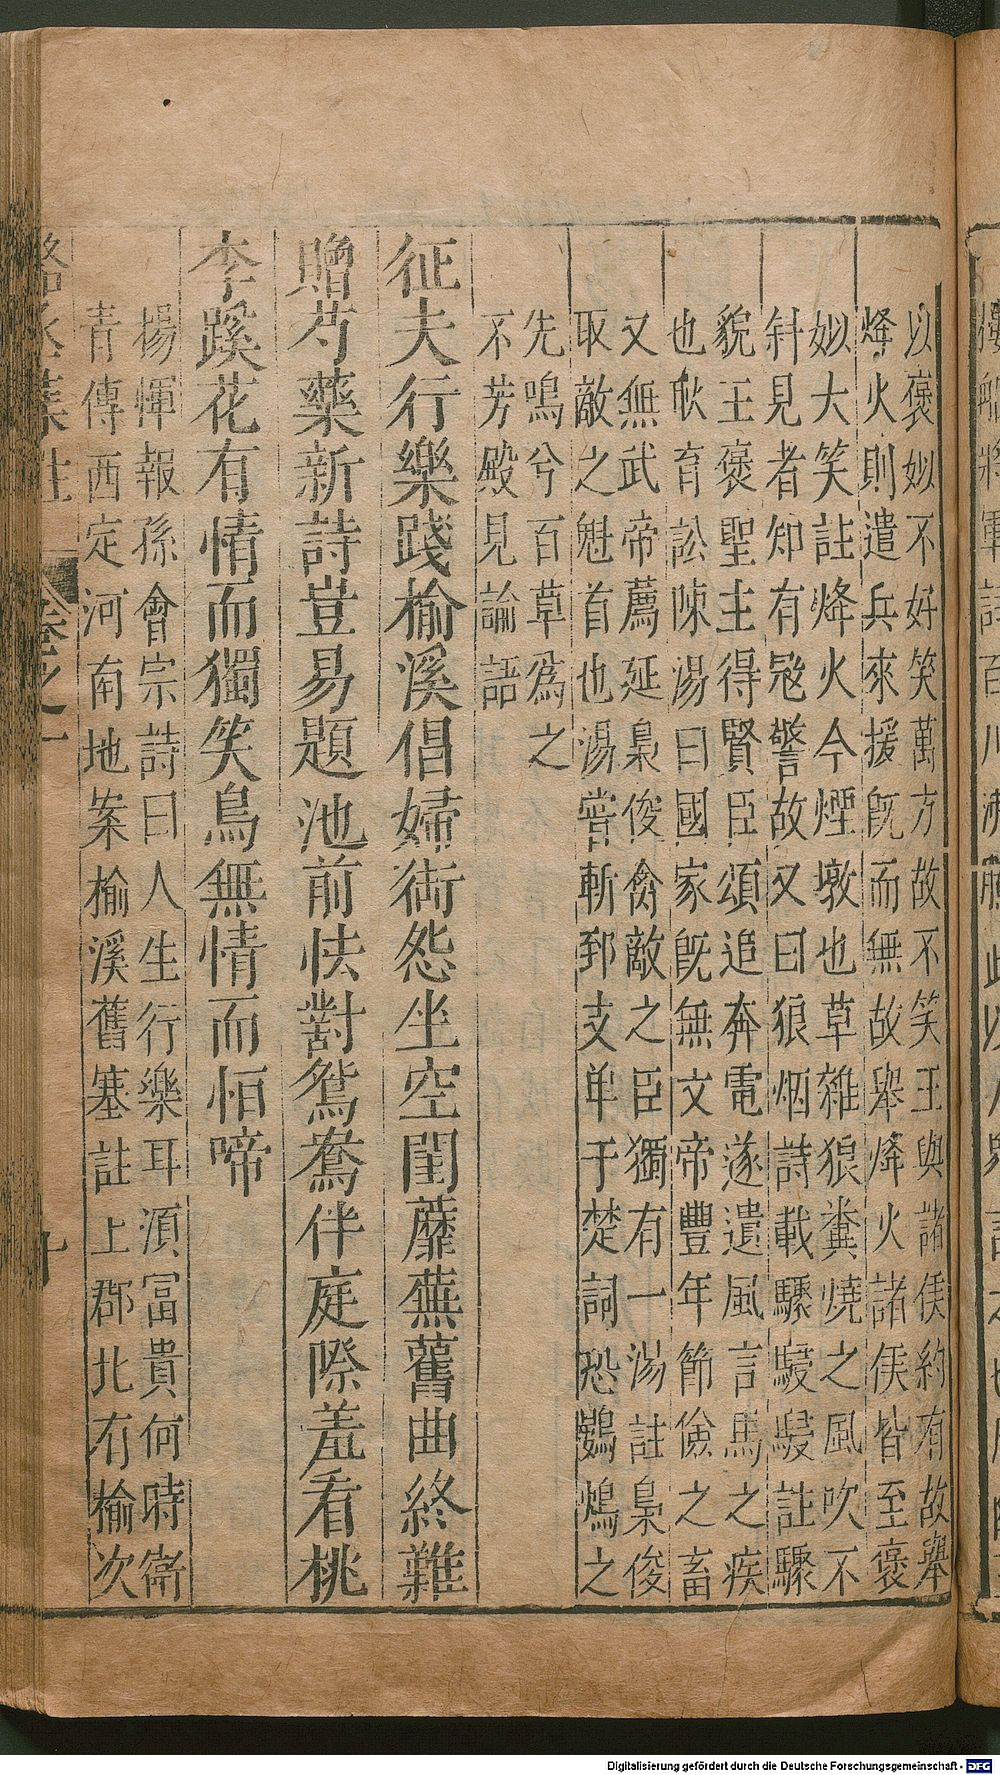 以褒姒不好笑萬方故不笑王與諸侯約有故舉
烽火則遣兵來援旣而無故舉烽火諸侯皆至褒
姒大笑註烽火今煙墩也草雜狼糞燒之風吹不
斜見者知有冦警故又曰狼烟詩載驟駸駸註驟
貌王褒聖主得賢臣頌追奔電遂遣風言馬之疾
也耿育訟陳湯曰國家旣無文帝豐年節儉之畜
又無武帝薦延梟俊禽敵之臣獨有一湯註梟俊
取敵之魁首也湯嘗斬郅支单于楚詞恐鵜鴂之
先鳴兮百草為之
不芳殿見論語
征夫行樂踐榆溪倡婦銜怨坐空閨蘼蕪舊曲終難
贈芍藥新詩豈易題池前怯對鴛鴦伴庭際羞看桃
李蹊花有情而獨笑鳥無情而恒啼
揚惲報孫會宗詩曰人生行樂耳湏冨貴何時衛
青傳西定河南地案榆溪舊塞註上郡北有榆次
卷之一
Digitalisierung gefördert durch die Deutsche Forschungsgemeinschaft - DFG